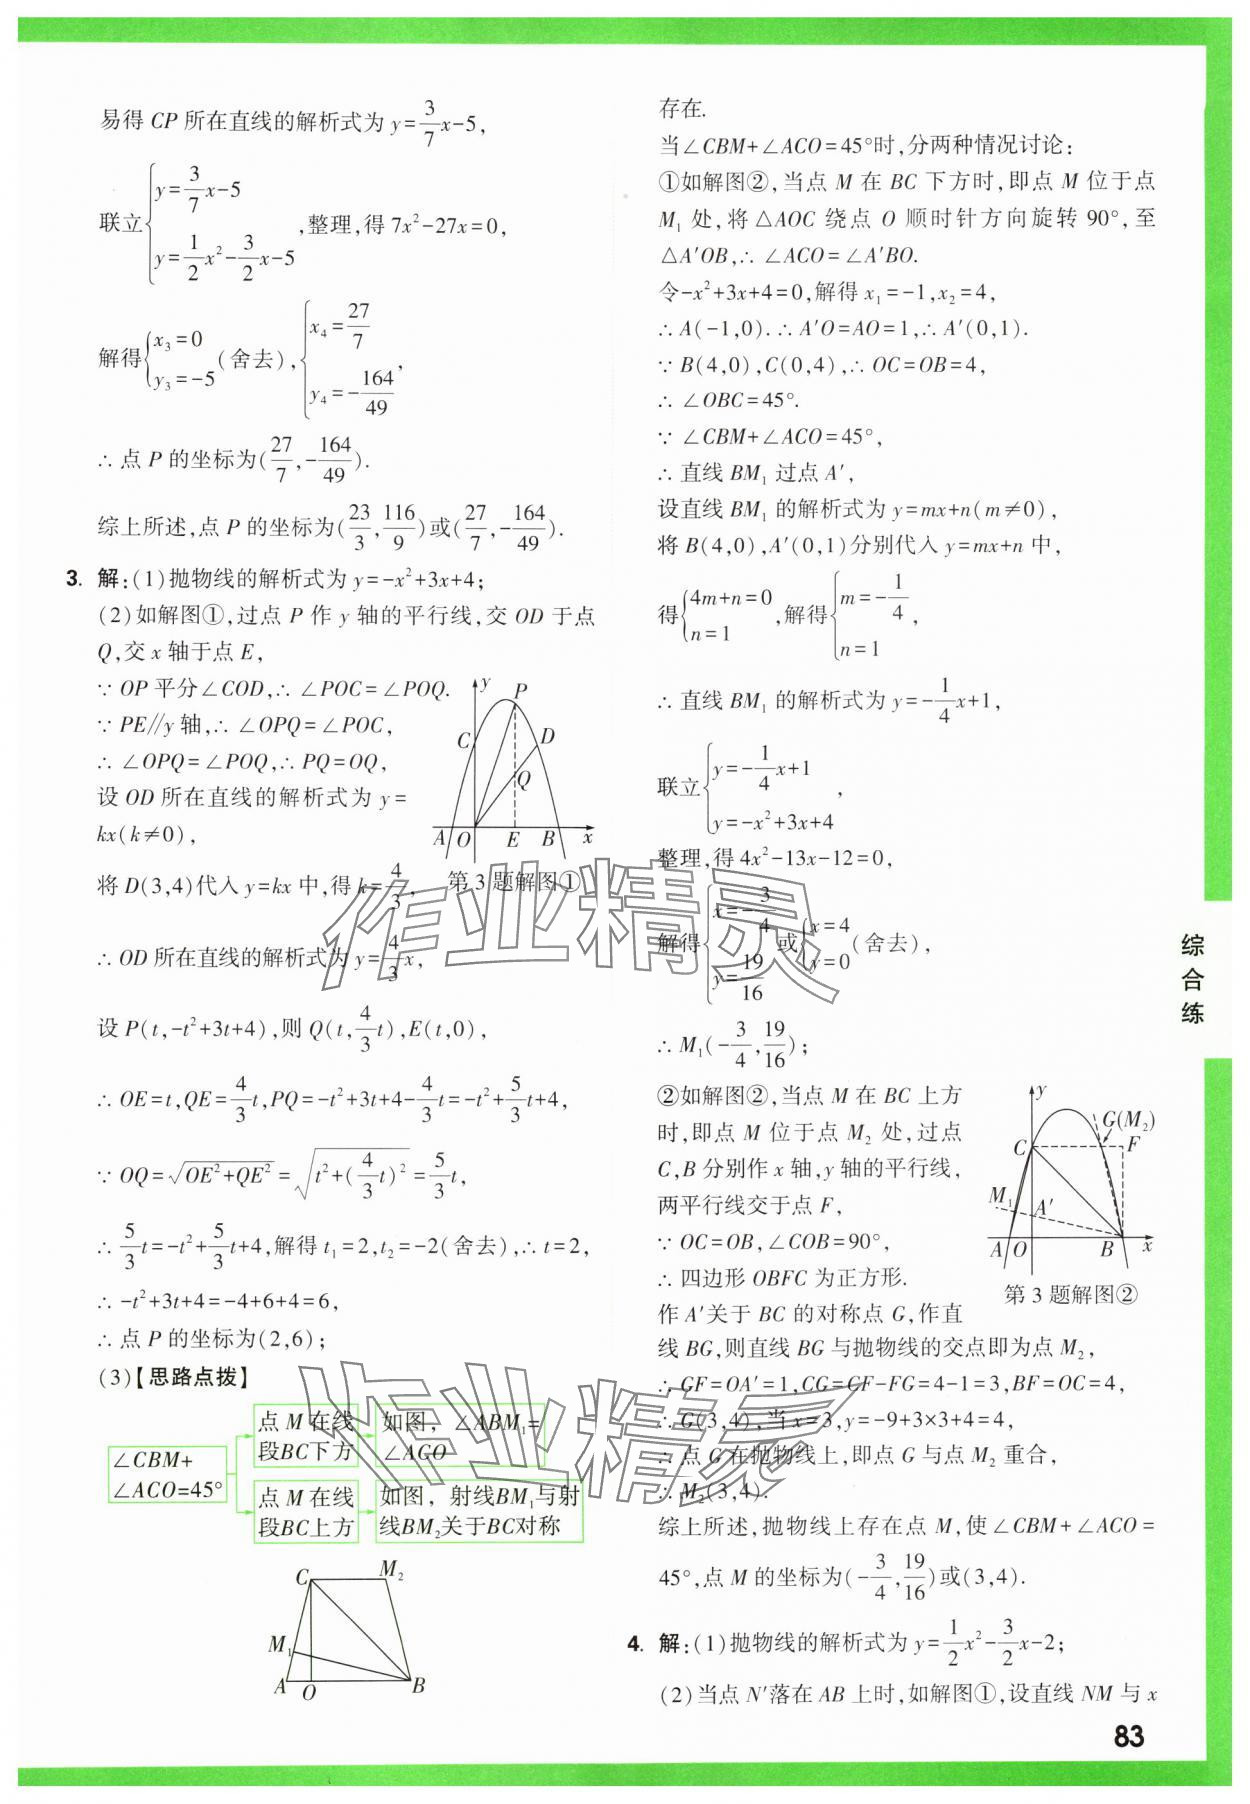 易得 CP 所在直线的解析式为 y=3/7x-5,
联立{y=3/7x-5, y=1/2x²-3/2x-5,整理,得 7x²-27x=0,
解得{x₃=0, y₃=-5(舍去),{x₄=27/7, y₄=-164/49,
∴点 P 的坐标为(27/7,-164/49).
综上所述,点 P 的坐标为(23/3,116/9)或(27/7,-164/49).
3. 解:(1)抛物线的解析式为 y=-x²+3x+4;
(2)如解图①,过点 P 作 y 轴的平行线,交 OD 于点
Q,交 x 轴于点 E,
∵OP 平分∠COD,∴∠POC=∠POQ.
∵PE∥y 轴,∴∠OPQ=∠POC,
∴∠OPQ=∠POQ,∴PQ=OQ,
设 OD 所在直线的解析式为 y=
kx(k≠0),
将 D(3,4)代入 y=kx 中,得 k=4/3,
y
P
C
D
Q
A
O
E
B
x
第 3 题解图①
∴OD 所在直线的解析式为 y=4/3x,
设 P(t,-t²+3t+4),则 Q(t,4/3t),E(t,0),
∴OE=t,QE=4/3t,PQ=-t²+3t+4-4/3t=-t²+5/3t+4,
∵OQ=√(OE²+QE²)=√(t²+(4/3t)²)=5/3t,
∴5/3t=-t²+5/3t+4,解得 t₁=2,t₂=-2(舍去),∴t=2,
∴-t²+3t+4=-4+6+4=6,
∴点 P 的坐标为(2,6);
(3)【思路点拨】
∠CBM+
∠ACO=45°
点 M 在线
段BC下方
如图，∠ABM₁=
∠AGO
点 M 在线
段BC上方
如图，射线BM₁与射
线BM₂关于BC对称
C
M₂
M₁
A
O
B
存在.
当∠CBM+∠ACO=45°时,分两种情况讨论:
①如解图②,当点 M 在 BC 下方时,即点 M 位于点
M₁ 处,将△AOC 绕点 O 顺时针方向旋转 90°,至
△A'OB,∴∠ACO=∠A'BO.
令-x²+3x+4=0,解得 x₁=-1,x₂=4,
∴A(-1,0).∴A'O=AO=1,∴A'(0,1).
∵B(4,0),C(0,4),∴OC=OB=4,
∴∠OBC=45°.
∵∠CBM+∠ACO=45°,
∴直线 BM₁ 过点 A',
设直线 BM₁ 的解析式为 y=mx+n(m≠0),
将 B(4,0),A'(0,1)分别代入 y=mx+n 中,
得{4m+n=0, n=1,解得{m=-1/4, n=1,
∴直线 BM₁ 的解析式为 y=-1/4x+1,
联立{y=-1/4x+1, y=-x²+3x+4,
整理,得 4x²-13x-12=0,
解得{x=-3/4, y=19/16或{x=4, y=0(舍去),
∴M₁(-3/4,19/16);
②如解图②,当点 M 在 BC 上方
时,即点 M 位于点 M₂ 处,过点
C,B 分别作 x 轴,y 轴的平行线,
两平行线交于点 F,
∵OC=OB,∠COB=90°,
∴四边形 OBFC 为正方形.
y
G(M₂)
C
F
M₁
A'
A
O
B
x
第 3 题解图②
作 A'关于 BC 的对称点 G,作直
线 BG,则直线 BG 与抛物线的交点即为点 M₂,
∴GF=OA'=1,CG=CF-FG=4-1=3,BF=OC=4,
∴G(3,4),当 x=3,y=-9+3×3+4=4,
∴点 G 在抛物线上,即点 G 与点 M₂ 重合,
∴M₂(3,4).
综上所述,抛物线上存在点 M,使∠CBM+∠ACO=
45°,点 M 的坐标为(-3/4,19/16)或(3,4).
4. 解:(1)抛物线的解析式为 y=1/2x²-3/2x-2;
(2)当点 N'落在 AB 上时,如解图①,设直线 NM 与 x
综合练
83
作业精灵
作业精灵